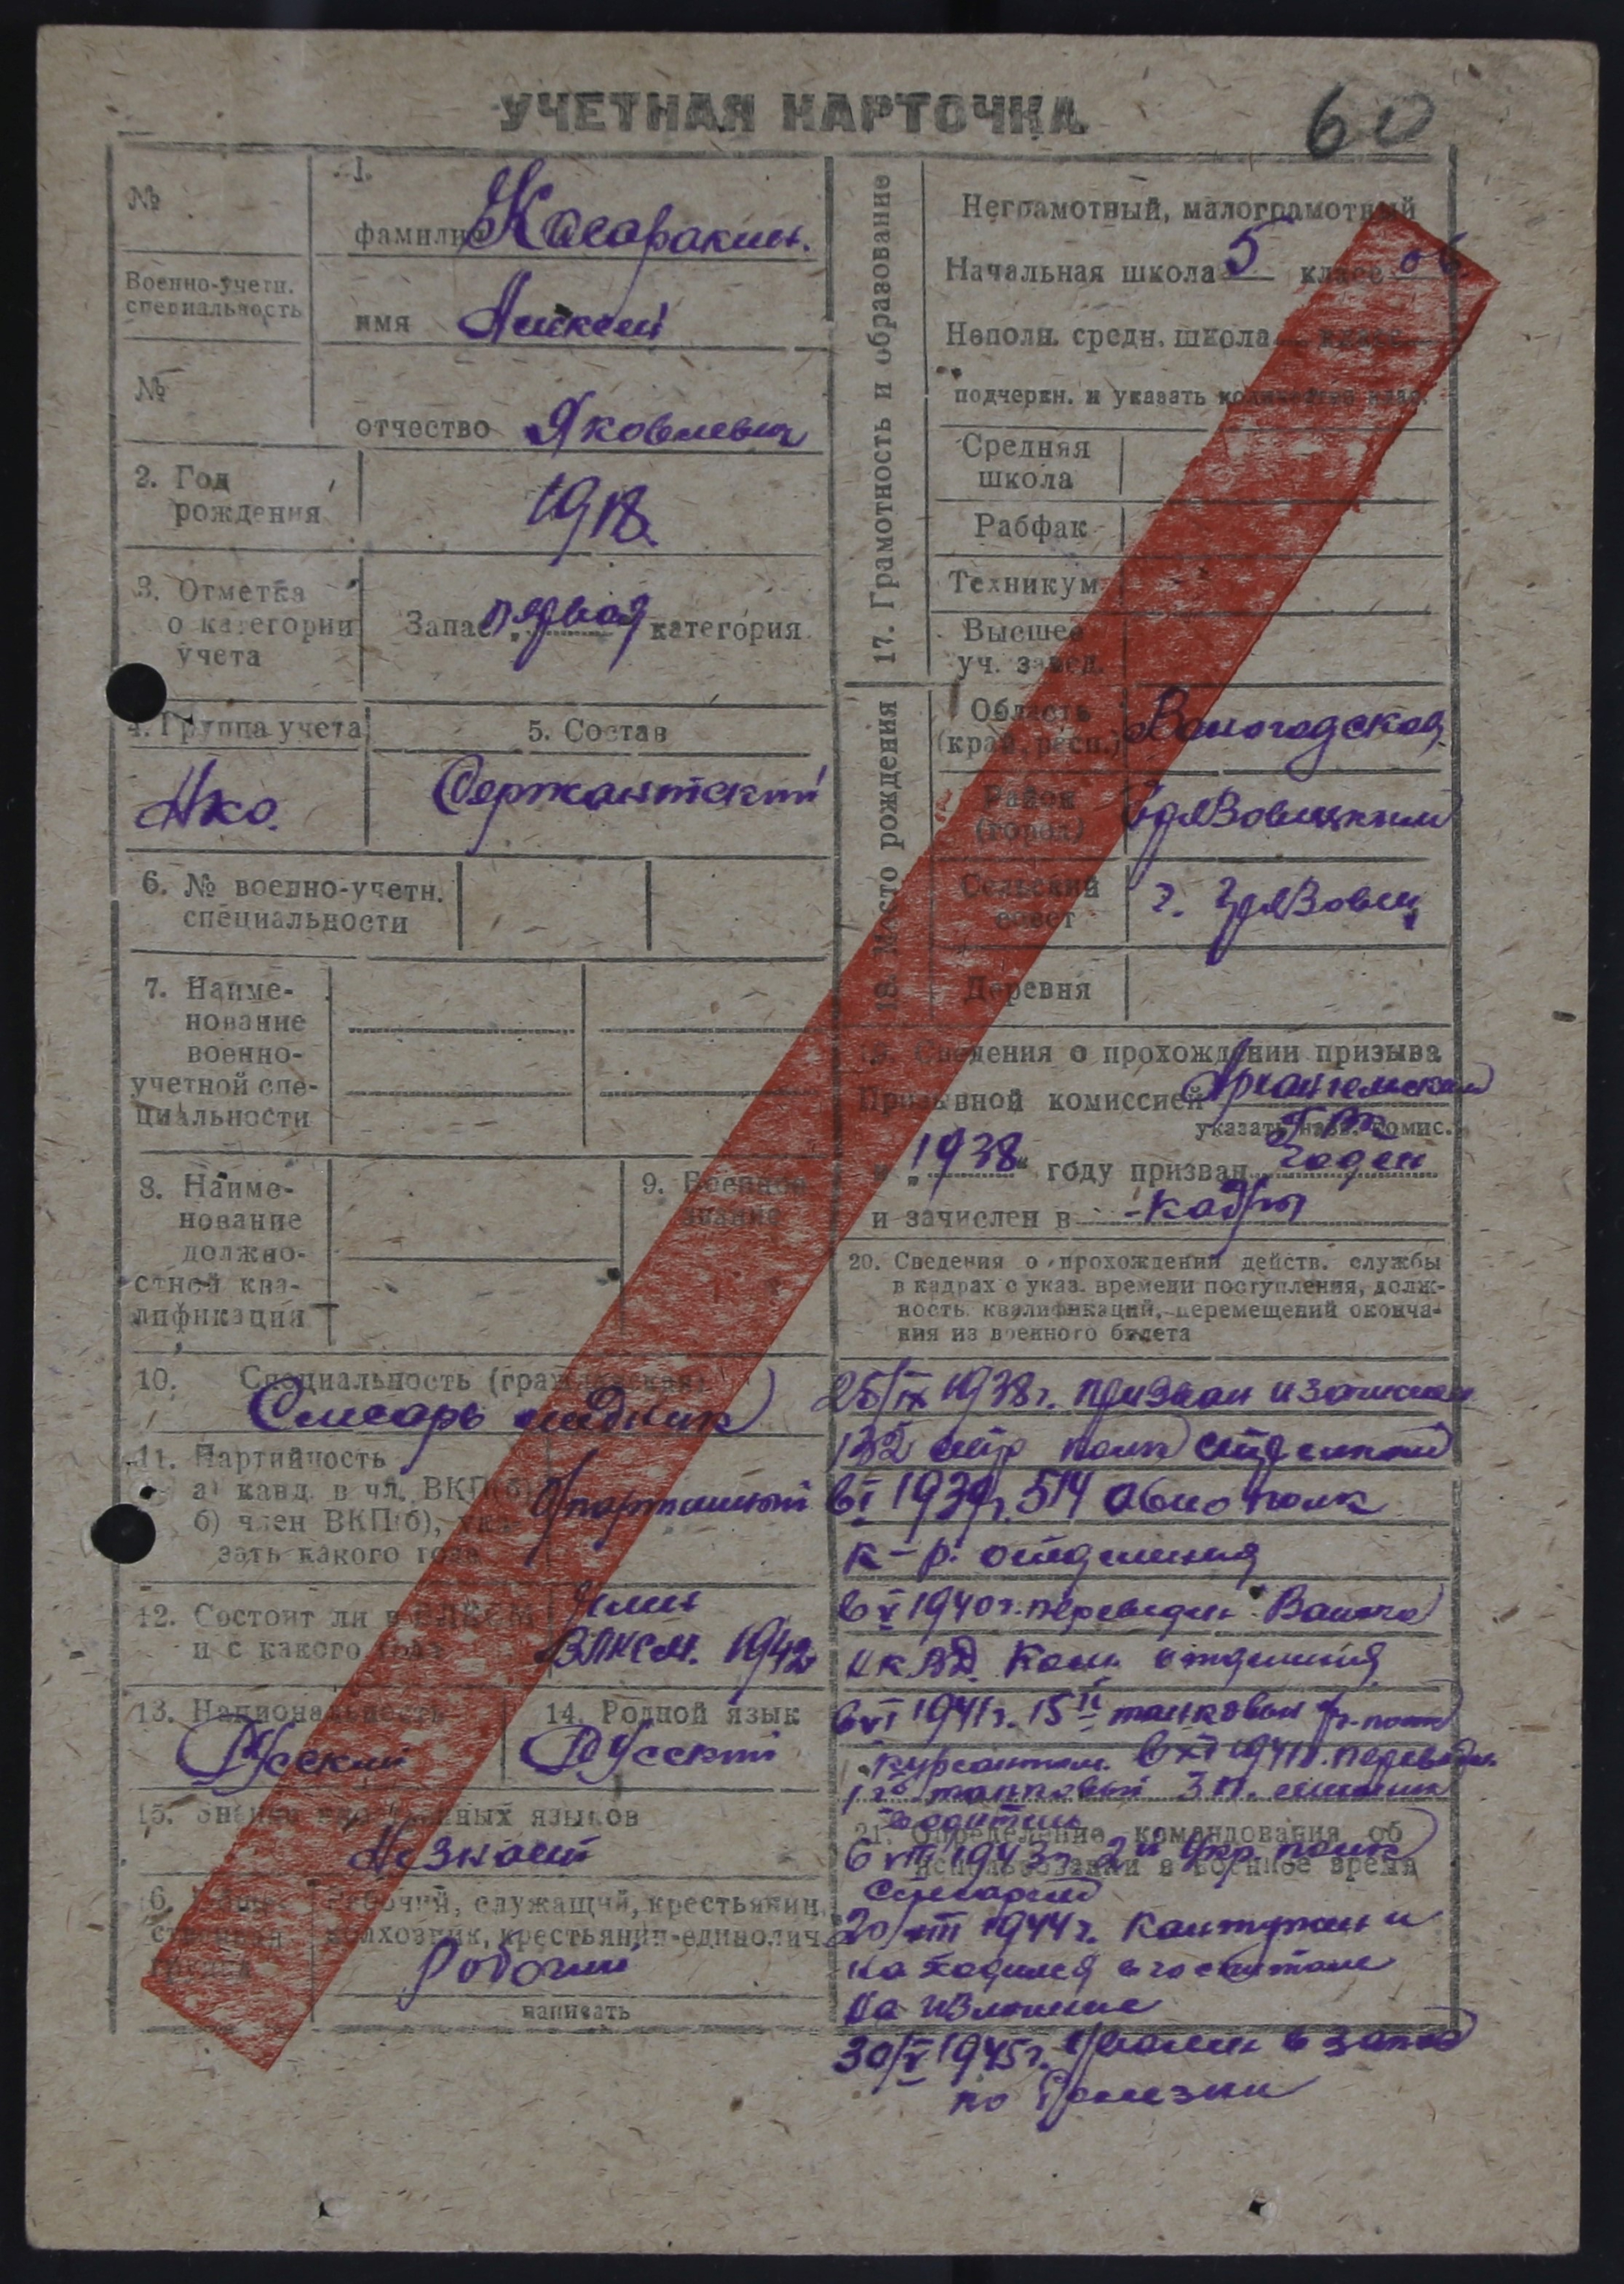 УЧЕТНАЯ КАРТОЧКА
60
№
Военно-учетн.
специальность
№
1.
фамилия Касаракин.
имя Алексей
отчество Яковлевич
2. Год
рождения
1918.
3. Отметка
о категории
учета
Запас первая категория
4. Группа учета
Нко.
5. Состав
Сержантский
6. № военно-учетн.
специальности
7. Наиме-
нование
военно-
учетной спе-
циальности
8. Наиме-
нование
должно-
стной ква-
лификации
9. Военное
звание
10. Специальность (гражданская)
Слесарь медник
11. Партийность
а) канд. в чл. ВКП(б)
б) член ВКП(б), ука-
зать какого года
б/партийный
12. Состоит ли в ВЛКСМ
и с какого года
член
ВЛКСМ. 1942
13. Национальность
Русский
14. Родной язык
Русский
15. Знание иностранных языков
Не знает
Рабочий, служащий, крестьянин,
колхозник, крестьянин-единолич.
Рабочий
написать
17. Грамотность и образование
Неграмотный, малограмотный
Начальная школа 5 класс
Неполн. средн. школа класс
подчеркн. и указать количество клас.
Средняя
школа
Рабфак
Техникум
Высшее
уч. завед.
18. Место рождения
Область
(край, респ.)
Вологодская
Район
(город)
Грязовецкий
Сельский
совет
г. Грязовец
Деревня
19. Сведения о прохождении призыва
Призывной комиссией Архангельской
указать назв. комис.
ГВК
в „1938“ году призван годен
и зачислен в кадры
20. Сведения о прохождении действ. службы
в кадрах с указ. времени поступления, долж-
ность квалификаций, перемещений оконча-
ния из военного билета
25/IX 1938г. призван и зачислен
132 стр полк стрелком
в I 1939г. 514 авто полк
к-р. отделения
в V 1940г. переведен
НКВД. Ком. отделения
в VI 1941г. 15й танковый
курсантом. в XI 1941г. переведен
1й танковый З п.
водитель
21. Определение командования об
использовании в военное время
в VIII 1943г. 2й Укр. полк
Слесарем
20/VIII 1944г. Контужен и
находился в госпитале
на излечение
30/V 1945г. уволен в запас
по болезни